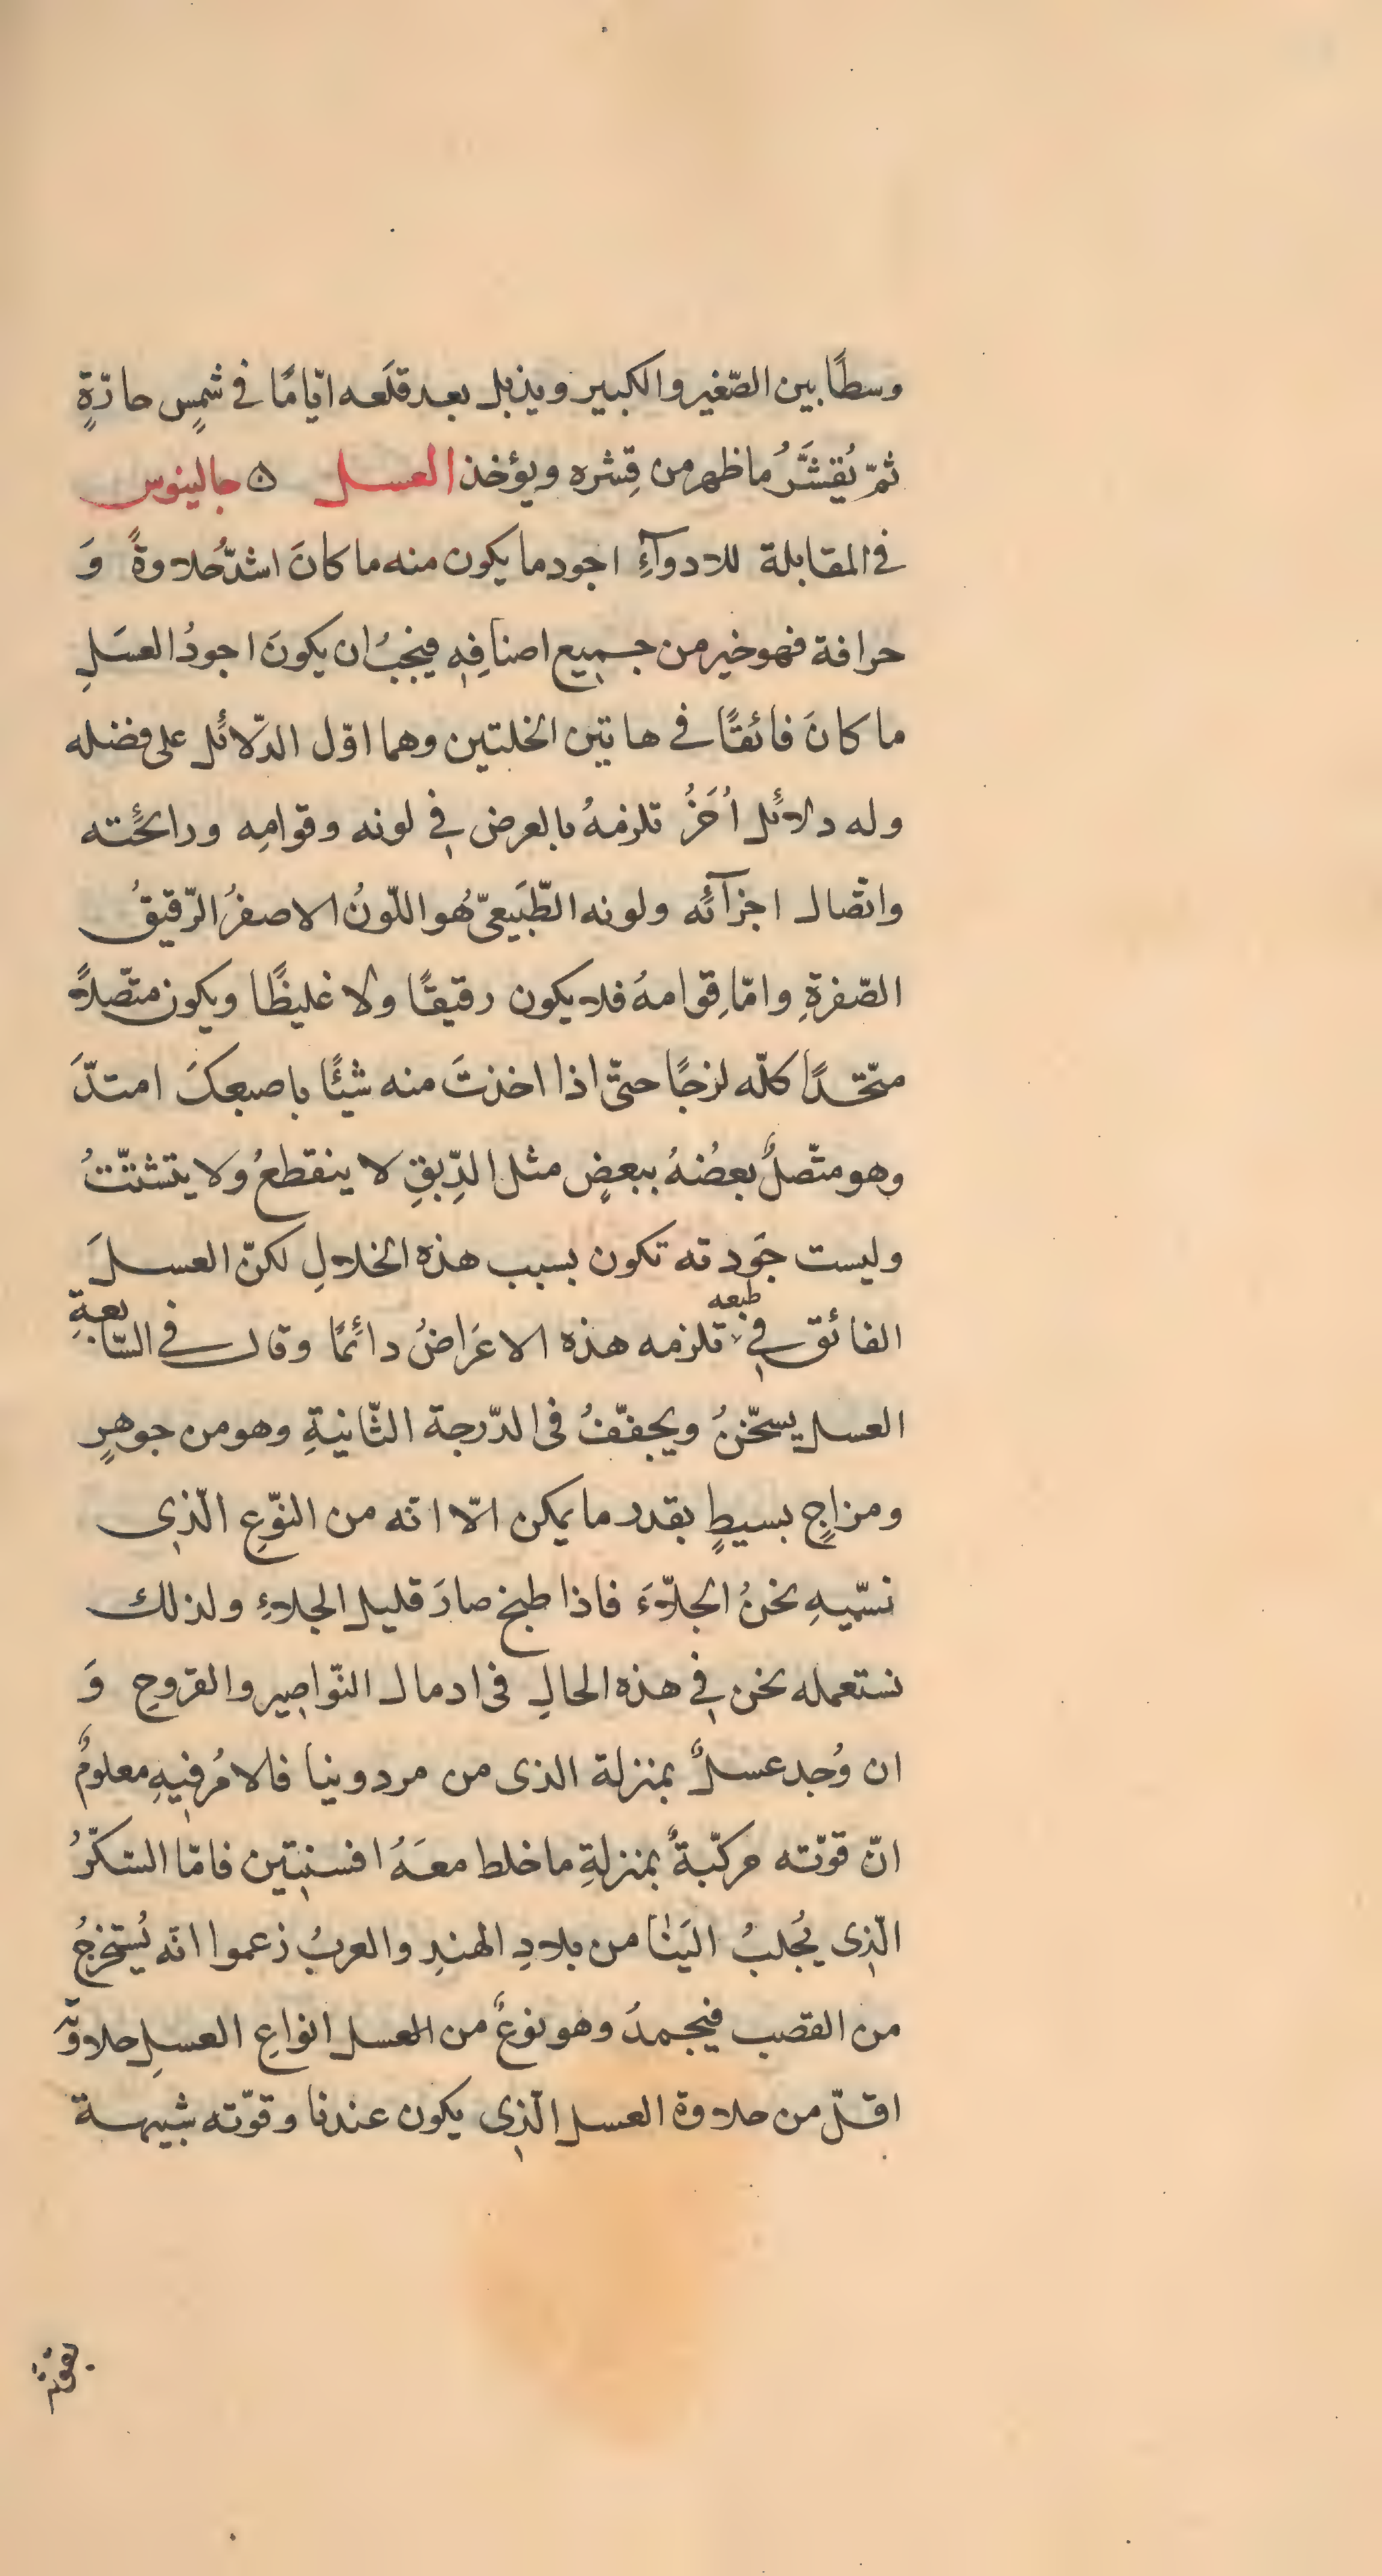 وسطًا بين الصّغير والكبير ويذبل بعد قلَعه ايّامًا فى شمسٍ حادّةٍ
ثمّ يُقشَّرُ ما ظهر من قِشره ويؤخذ العسل ۞ جالينوس
فى المقابلة للادوآءِ اجود ما يكون منه ما كانَ اشدّ حُلاوةً وَ
حرافة فهو خير من جميع اصنافِهِ فيجبُ ان يكونَ اجودُ العسَلِ
ما كانَ فائقًا فى هاتين الخلتين وهما اوّل الدّلائل على فضله
وله دلائل اُخَرُ تلزمهُ بالعرض فى لونه وقوامِه ورائحته
واتّصال اجزآئه ولونه الطّبَيعىّ هُو اللّونُ الاصفرُ الرّقيقُ
الصّفرةِ وامّا قِوامهُ فلا يكون رقيقًا ولا غليظًا ويكون متّصلاً
متّحدًا كلّه لزجًا حتّى اذا اخذتَ منه شيئًا باصبعكَ امتدّ
وهو متّصلٌ بعضُهُ ببعضٍ مثل الدِّبقِ لا ينقطعُ ولا يتشتّتُ
وليست جَودته تكون بسبب هذه الخلالِ لكنّ العسلَ
الفائق فى طبعه تلزمه هذه الاعَراضُ دائمًا وقال فى السّابعةِ
العسل يسخّنُ ويجفّفُ فى الدّرجة الثّانيةِ وهو من جوهرٍ
ومزاجٍ بسيطٍ بقدر ما يمكن الّا انّه من النّوعِ الّذى
نسّميهِ نحنُ الجلّاءَ فاذا طبخ صارَ قليل الجلاءِ ولذلك
نستعمله نحن فى هذه الحالِ فى ادمال النّواصير والقروحِ وَ
ان وُجد عسلٌ بمنزلة الذى من مردونيا فالامُر فيهِ معلومٌ
انّ قوّته مركّبةٌ بمنزلةِ ما خلط معَهُ افسنتين فامّا السّكّرُ
الّذى يُجلبُ اليَنا من بلادِ الهندِ والعربُ زعموا انّه يُستخرجُ
من القصب فيجمدُ وهو نوعٌ من العسل انواعِ العسلِ حلاوته
اقلّ من حلاوة العسل الّذى يكون عندنا وقوّته شبيهة
بقوّته